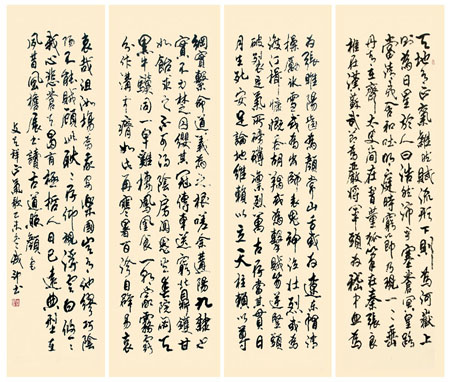 天地有正氣雜然賦流形下則為河嶽上
則為日星於人曰浩然沛乎塞蒼冥皇路
當清夷含和吐明庭時窮節乃見一一垂
丹青在齊太史簡在晉董狐筆在秦張良
椎在漢蘇武節為嚴將軍頭為嵇侍中血
為張睢陽齒為顏常山舌或為遼東帽清
操厲冰雪或為出師表鬼神泣壯烈或為
渡江楫慷慨吞胡羯或為擊賊笏逆豎頭
破裂是氣所磅礴凜烈萬古存當其貫日
月生死安足論地維賴以立天柱賴以尊
綱實繫命道義為之根嗟余遘陽九隸也
實不力楚囚纓其冠傳車送窮北鼎鑊甘
如飴求之不可得陰房闃鬼火春院閟天
黑牛驥同一皁雞棲鳳凰食一朝蒙霧露
分作溝中瘠如此再寒暑百沴自辟易
哀哉沮洳場為我安樂國豈有他繆巧陰
陽不能賊顧此耿耿存仰視浮雲白悠悠
我心悲蒼天曷有極哲人日已遠典型在
夙昔風檐展書讀古道照顏色
文天祥正氣歌乙未冬書